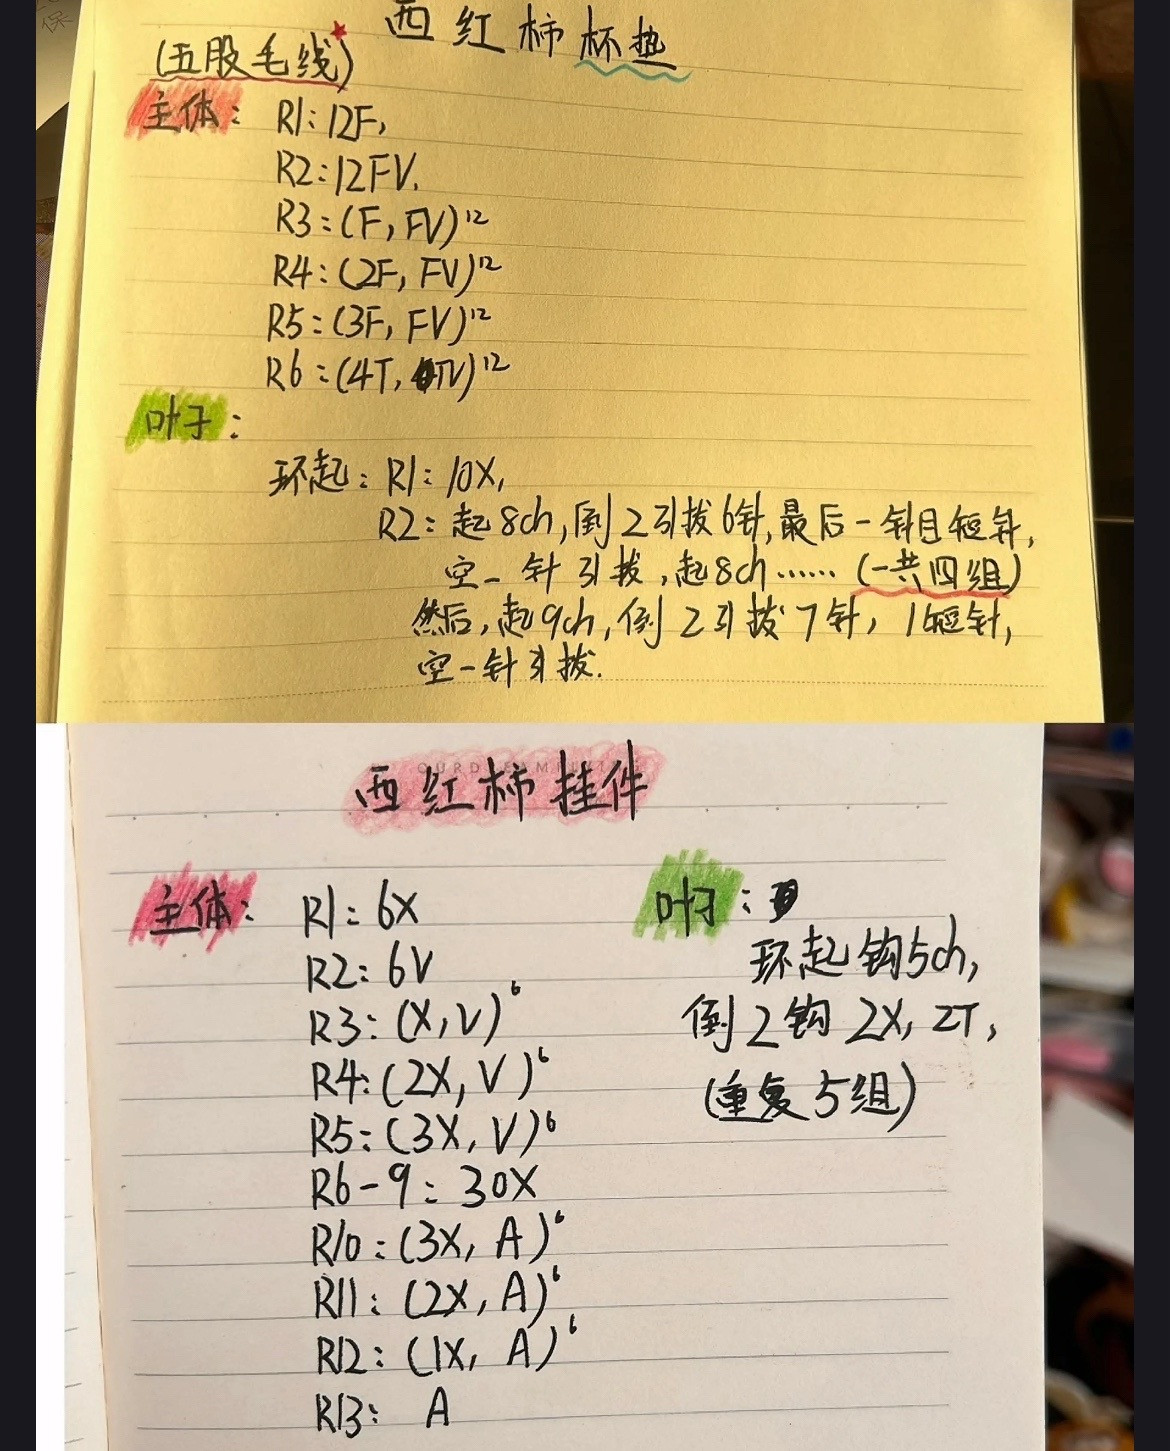 保
西红柿杯垫
(五股毛线)
主体: R1:12F,
R2:12FV.
R3:(F,FV)¹²
R4:(2F,FV)¹²
R5:(3F,FV)¹²
R6:(4T,TV)¹²
叶子:
环起:R1:10X,
R2:起8ch,倒2引拔6针,最后一针目短针,
空一针引拔,起8ch……(一共四组)
然后,起9ch,倒2引拔7针,1短针,
空一针引拔.
西红柿挂件
主体: R1:6X
R2:6V
R3:(X,V)⁶
R4:(2X,V)⁶
R5:(3X,V)⁶
R6-9:30X
R10:(3X,A)⁶
R11:(2X,A)⁶
R12:(1X,A)⁶
R13: A
叶子:
环起钩5ch,
倒2钩2X,2T,
(重复5组)